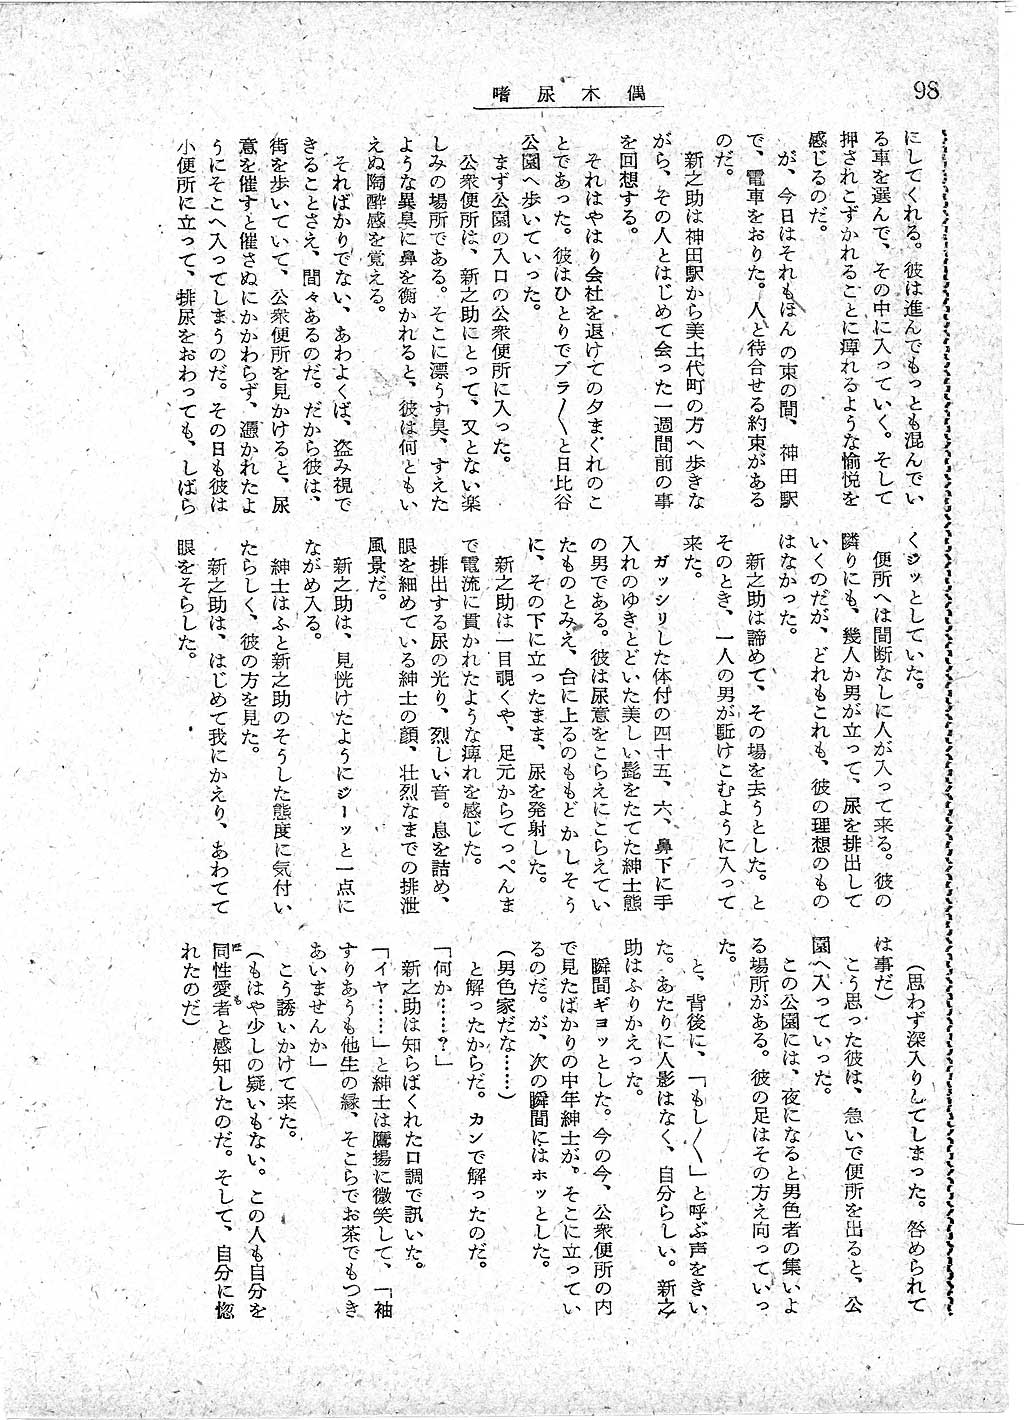 98
嗜尿木偶
にしてくれる。彼は進んでもっとも混んでい
る車を選んで、その中に入っていく。そして
押されこずかれることに痺れるような愉悦を
感じるのだ。
が、今日はそれもほんの束の間、神田駅
で、電車をおりた。人と待合せる約束がある
のだ。
新之助は神田駅から美土代町の方へ歩きな
がら、その人とはじめて会った一週間前の事
を回想する。
それはやはり会社を退けての夕まぐれのこ
とであった。彼はひとりでブラ〳〵と日比谷
公園へ歩いていった。
まず公園の入口の公衆便所に入った。
公衆便所は、新之助にとって、又とない楽
しみの場所である。そこに漂うす臭、すえた
ような異臭に鼻を衝かれると、彼は何ともい
えぬ陶酔感を覚える。
そればかりでない、あわよくば、盗み視で
きることさえ、間々あるのだ。だから彼は、
街を歩いていて、公衆便所を見かけると、尿
意を催すと催さぬにかかわらず、憑かれたよ
うにそこへ入ってしまうのだ。その日も彼は
小便所に立って、排尿をおわっても、しばら
くジッとしていた。
便所へは間断なしに人が入って来る。彼の
隣りにも、幾人か男が立って、尿を排出して
いくのだが、どれもこれも、彼の理想のもの
はなかった。
新之助は諦めて、その場を去うとした。と
そのとき、一人の男が駈けこむように入って
来た。
ガッシリした体付の四十五、六、鼻下に手
入れのゆきとどいた美しい髭をたてた紳士態
の男である。彼は尿意をこらえにこらえてい
たものとみえ、台に上るのももどかしそう
に、その下に立ったまま、尿を発射した。
新之助は一目覗くや、足元からてっぺんま
で電流に貫かれたような痺れを感じた。
排出する尿の光り、烈しい音。息を詰め、
眼を細めている紳士の顔、壮烈なまでの排泄
風景だ。
新之助は、見恍けたようにジーッと一点に
ながめ入る。
紳士はふと新之助のそうした態度に気付い
たらしく、彼の方を見た。
新之助は、はじめて我にかえり、あわてて
眼をそらした。
（思わず深入りしてしまった。咎められて
は事だ）
こう思った彼は、急いで便所を出ると、公
園へ入っていった。
この公園には、夜になると男色者の集いよ
る場所がある。彼の足はその方え向っていっ
た。
と、背後に、「もし〳〵」と呼ぶ声をきい
た。あたりに人影はなく、自分らしい。新之
助はふりかえった。
瞬間ギョッとした。今の今、公衆便所の内
で見たばかりの中年紳士が。そこに立ってい
るのだ。が、次の瞬間にはホッとした。
（男色家だな……）
と解ったからだ。カンで解ったのだ。
「何か……？」
新之助は知らばくれた口調で訊いた。
「イヤ……」と紳士は鷹揚に微笑して、「袖
すりあうも他生の縁、そこらでお茶でもつき
あいませんか」
こう誘いかけて来た。
（もはや少しの疑いもない。この人も自分を
同性愛者と感知したのだ。そして、自分に惚
れたのだ）